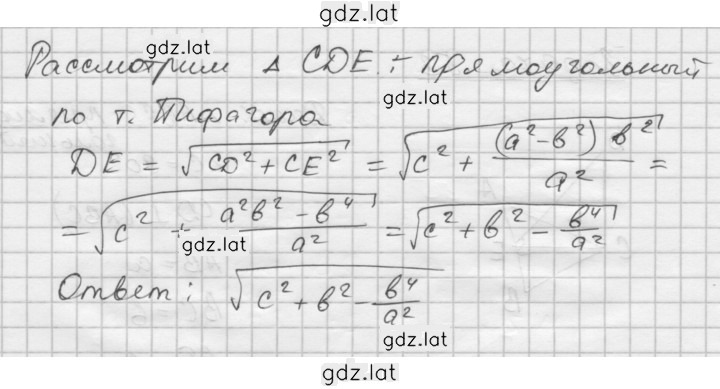 gdz.lat
gdz.lat
Рассмотрим △ CDE ÷ прямоугольный
gdz.lat
по т. Пифагора
DE = √(CD² + CE²) = √(c² + (a² - b²) b² / a²) =
= √(c² + (a²b² - b⁴) / a²) = √(c² + b² - b⁴/a²)
gdz.lat
Ответ: √(c² + b² - b⁴/a²)
gdz.lat